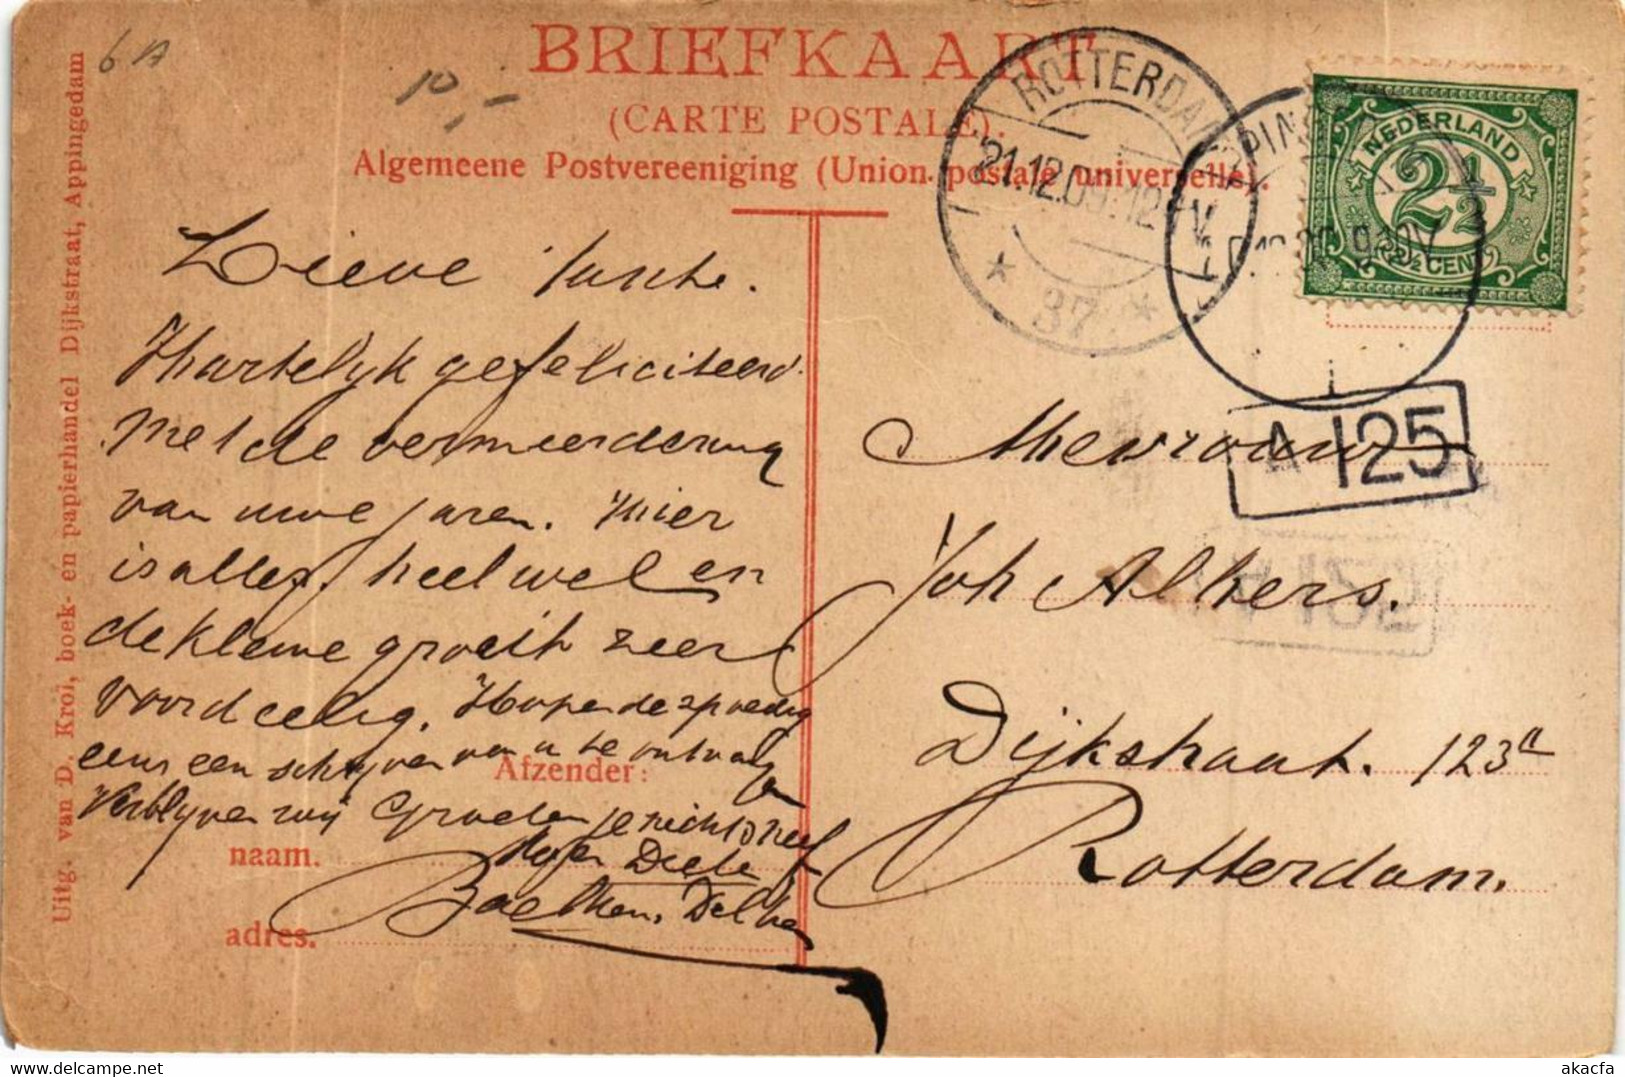 6A
10,-
BRIEFKAART
(CARTE POSTALE).
Algemeene Postvereeniging (Union postale universelle).
ROTTERDAM
21.12.09. 12-1V
* 37 *
PING
NEDERLAND
2½
2½ CENT
A 125
Lieve Tante.
Hartelyk gefeliciteerd
met de vermeerdering
van uwe jaren. Hier
is alles heel wel en
de kleine groeit zeer
voordeelig. Hopende spoedig
eens een schryven van u te ontvangen
Verblyven wij Groeten je nicht & neef
Afzender:
naam.
adres.
Mevrouw
Joh Alkers.
Dijkstraat. 123a
Rotterdam.
Uitg. van D. Kroi, boek- en papierhandel Dijkstraat, Appingedam
https://www.delcampe.net
akacfa